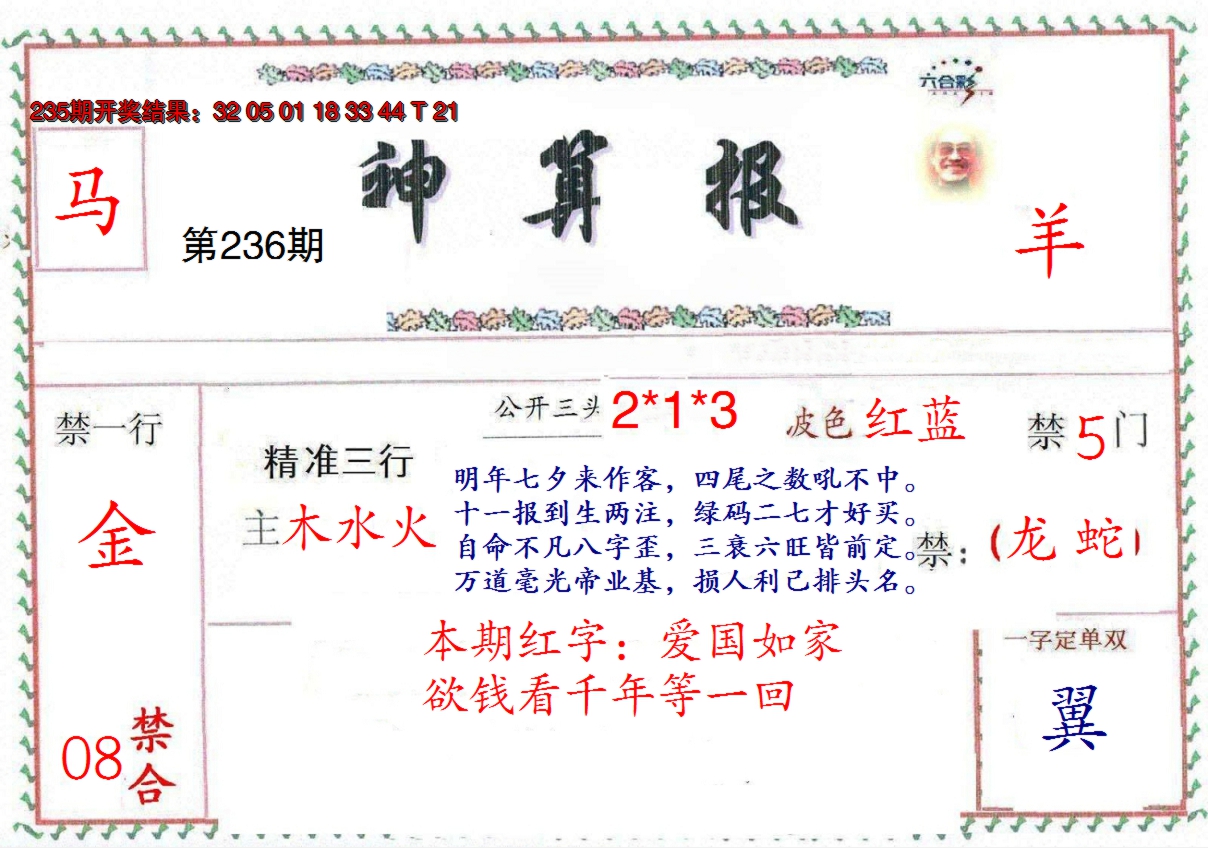 六合彩
235期开奖结果：32 05 01 18 33 44 T 21
马
神算报
第236期
羊
禁一行
金
08
禁合
精准三行
主木水火
公开三头 2*1*3
波色红蓝
禁5门
明年七夕来作客，四尾之数吼不中。
十一报到生两注，绿码二七才好买。
自命不凡八字歪，三衰六旺皆前定。
万道毫光帝业基，损人利己排头名。
禁：(龙 蛇)
本期红字：爱国如家
欲钱看千年等一回
一字定单双
翼